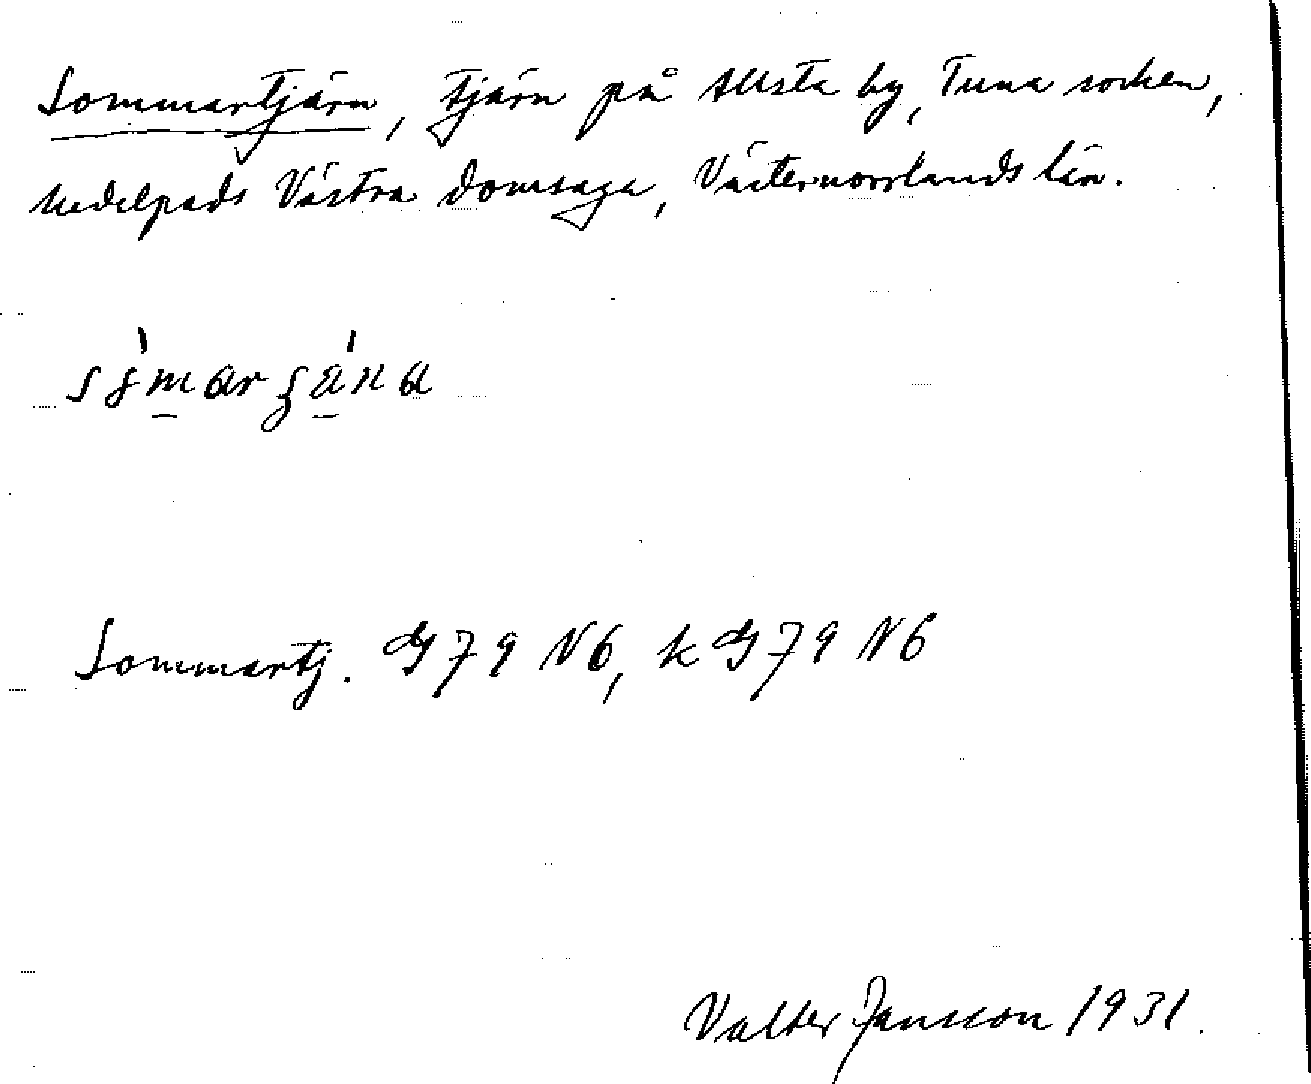 Sommartjärn, tjärn på Allsta by, Tuna socken,
Medelpads Västra Domsaga, Västernorrlands län.
Sommartj. G79 N6, k G79 N6
Valter Jansson 1931.